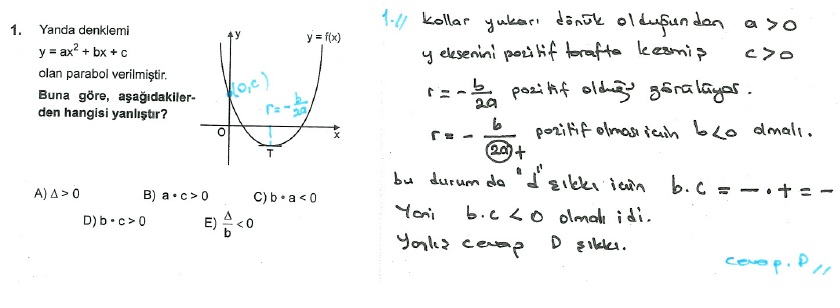 1. Yanda denklemi
y = ax² + bx + c
olan parabol verilmiştir.
Buna göre, aşağıdakiler-
den hangisi yanlıştır?
y
y = f(x)
(0,c)
r = -b/2a
O
x
T
A) Δ > 0 B) a • c > 0 C) b • a < 0
D) b • c > 0 E) Δ/b < 0
1.// kollar yukarı dönük olduğundan a > 0
y eksenini pozitif tarafta kesmiş c > 0
r = -b/2a pozitif olduğu görülüyor.
r = -b/2a + pozitif olması için b < 0 olmalı.
bu durumda "d" şıkkı için b.c = - . + = -
Yani b.c < 0 olmalı idi.
Yanlış cevap D şıkkı.
cevap. D //